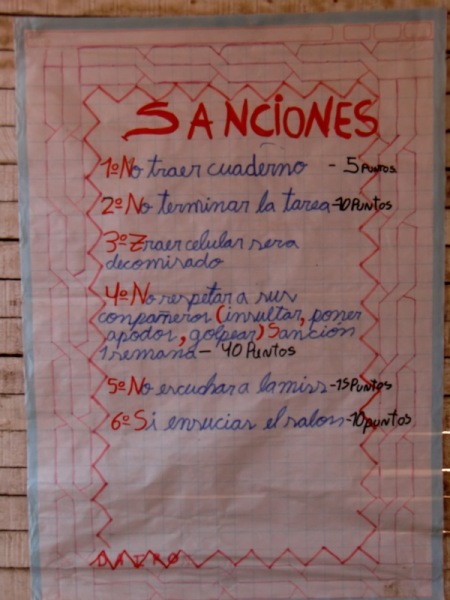 SANCIONES
1º No traer cuaderno - 5 PUNTOS
2º No terminar la tarea -10 PUNTOS
3º Traer celular sera
decomisado
4º No respetar a sus
compañeros (insultar, poner
apodos, golpear) Sanción
1 semana - 40 PUNTOS
5º No escuchar a la miss -15 PUNTOS
6º Si ensucias el salon -10 puntos